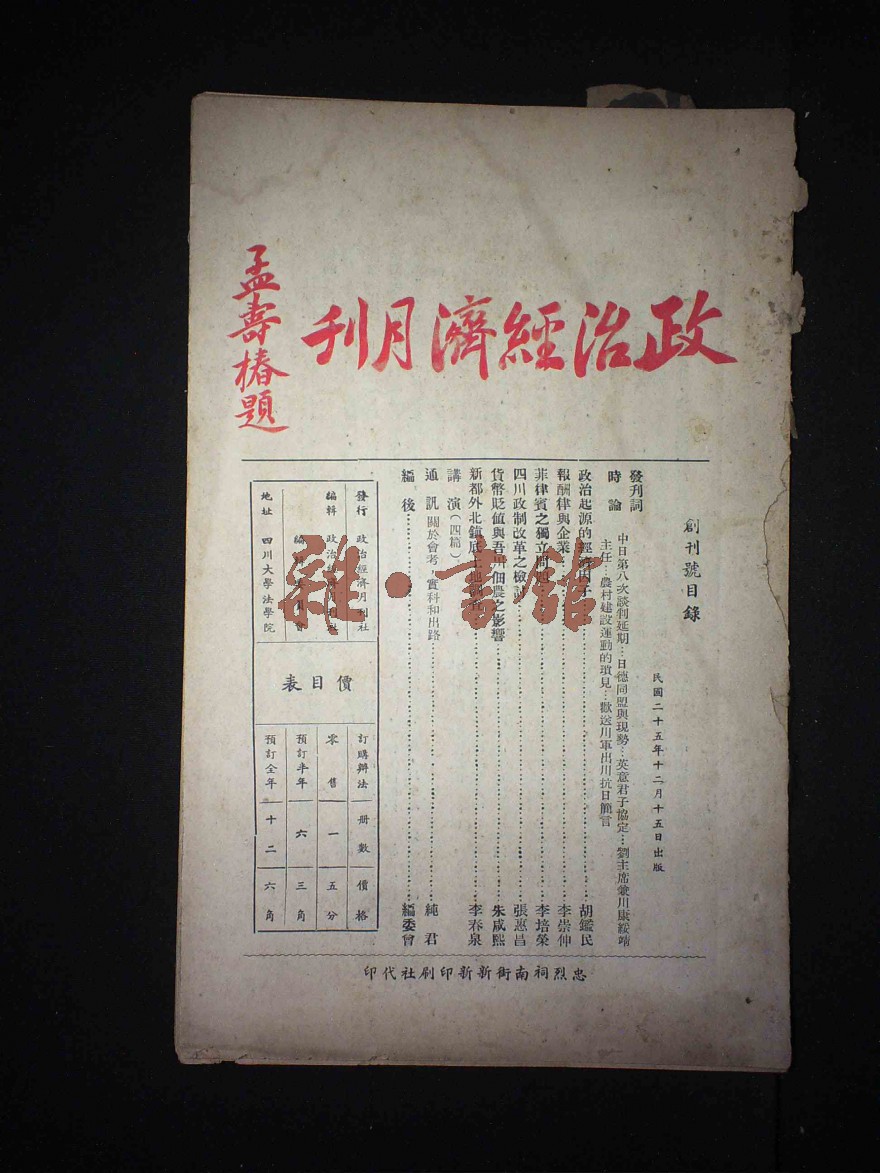 政治經濟月刊
孟壽椿題
創刊號目錄
民國二十五年十二月十五日出版
發刊詞
時論
中日第八次談判延期…日德同盟與現勢…英意君子協定…劉主席兼川康綏靖
主任…農村建設運動的瑣見…歡送川軍出川抗日簡言
政治起源的經濟因子……胡鑑民
報酬律與企業……李崇伸
菲律賓之獨立問題……李培榮
四川政制改革之檢討……張惠昌
貨幣貶値與吾川佃農之影響……朱咸熙
新都外北鎮底土地調查……李春泉
講演(四篇)
通訊 關於會考,實科和出路……純君
編後……編委會
發行 政治經濟月刊社
編輯 政治經濟月刊社
編輯委員會
地址 四川大學法學院
價目表
訂購辦法 册數 價格
零售 一 五分
預訂半年 六 三角
預訂全年 十二 六角
忠烈祠南街新新印刷社代印
雜·書館